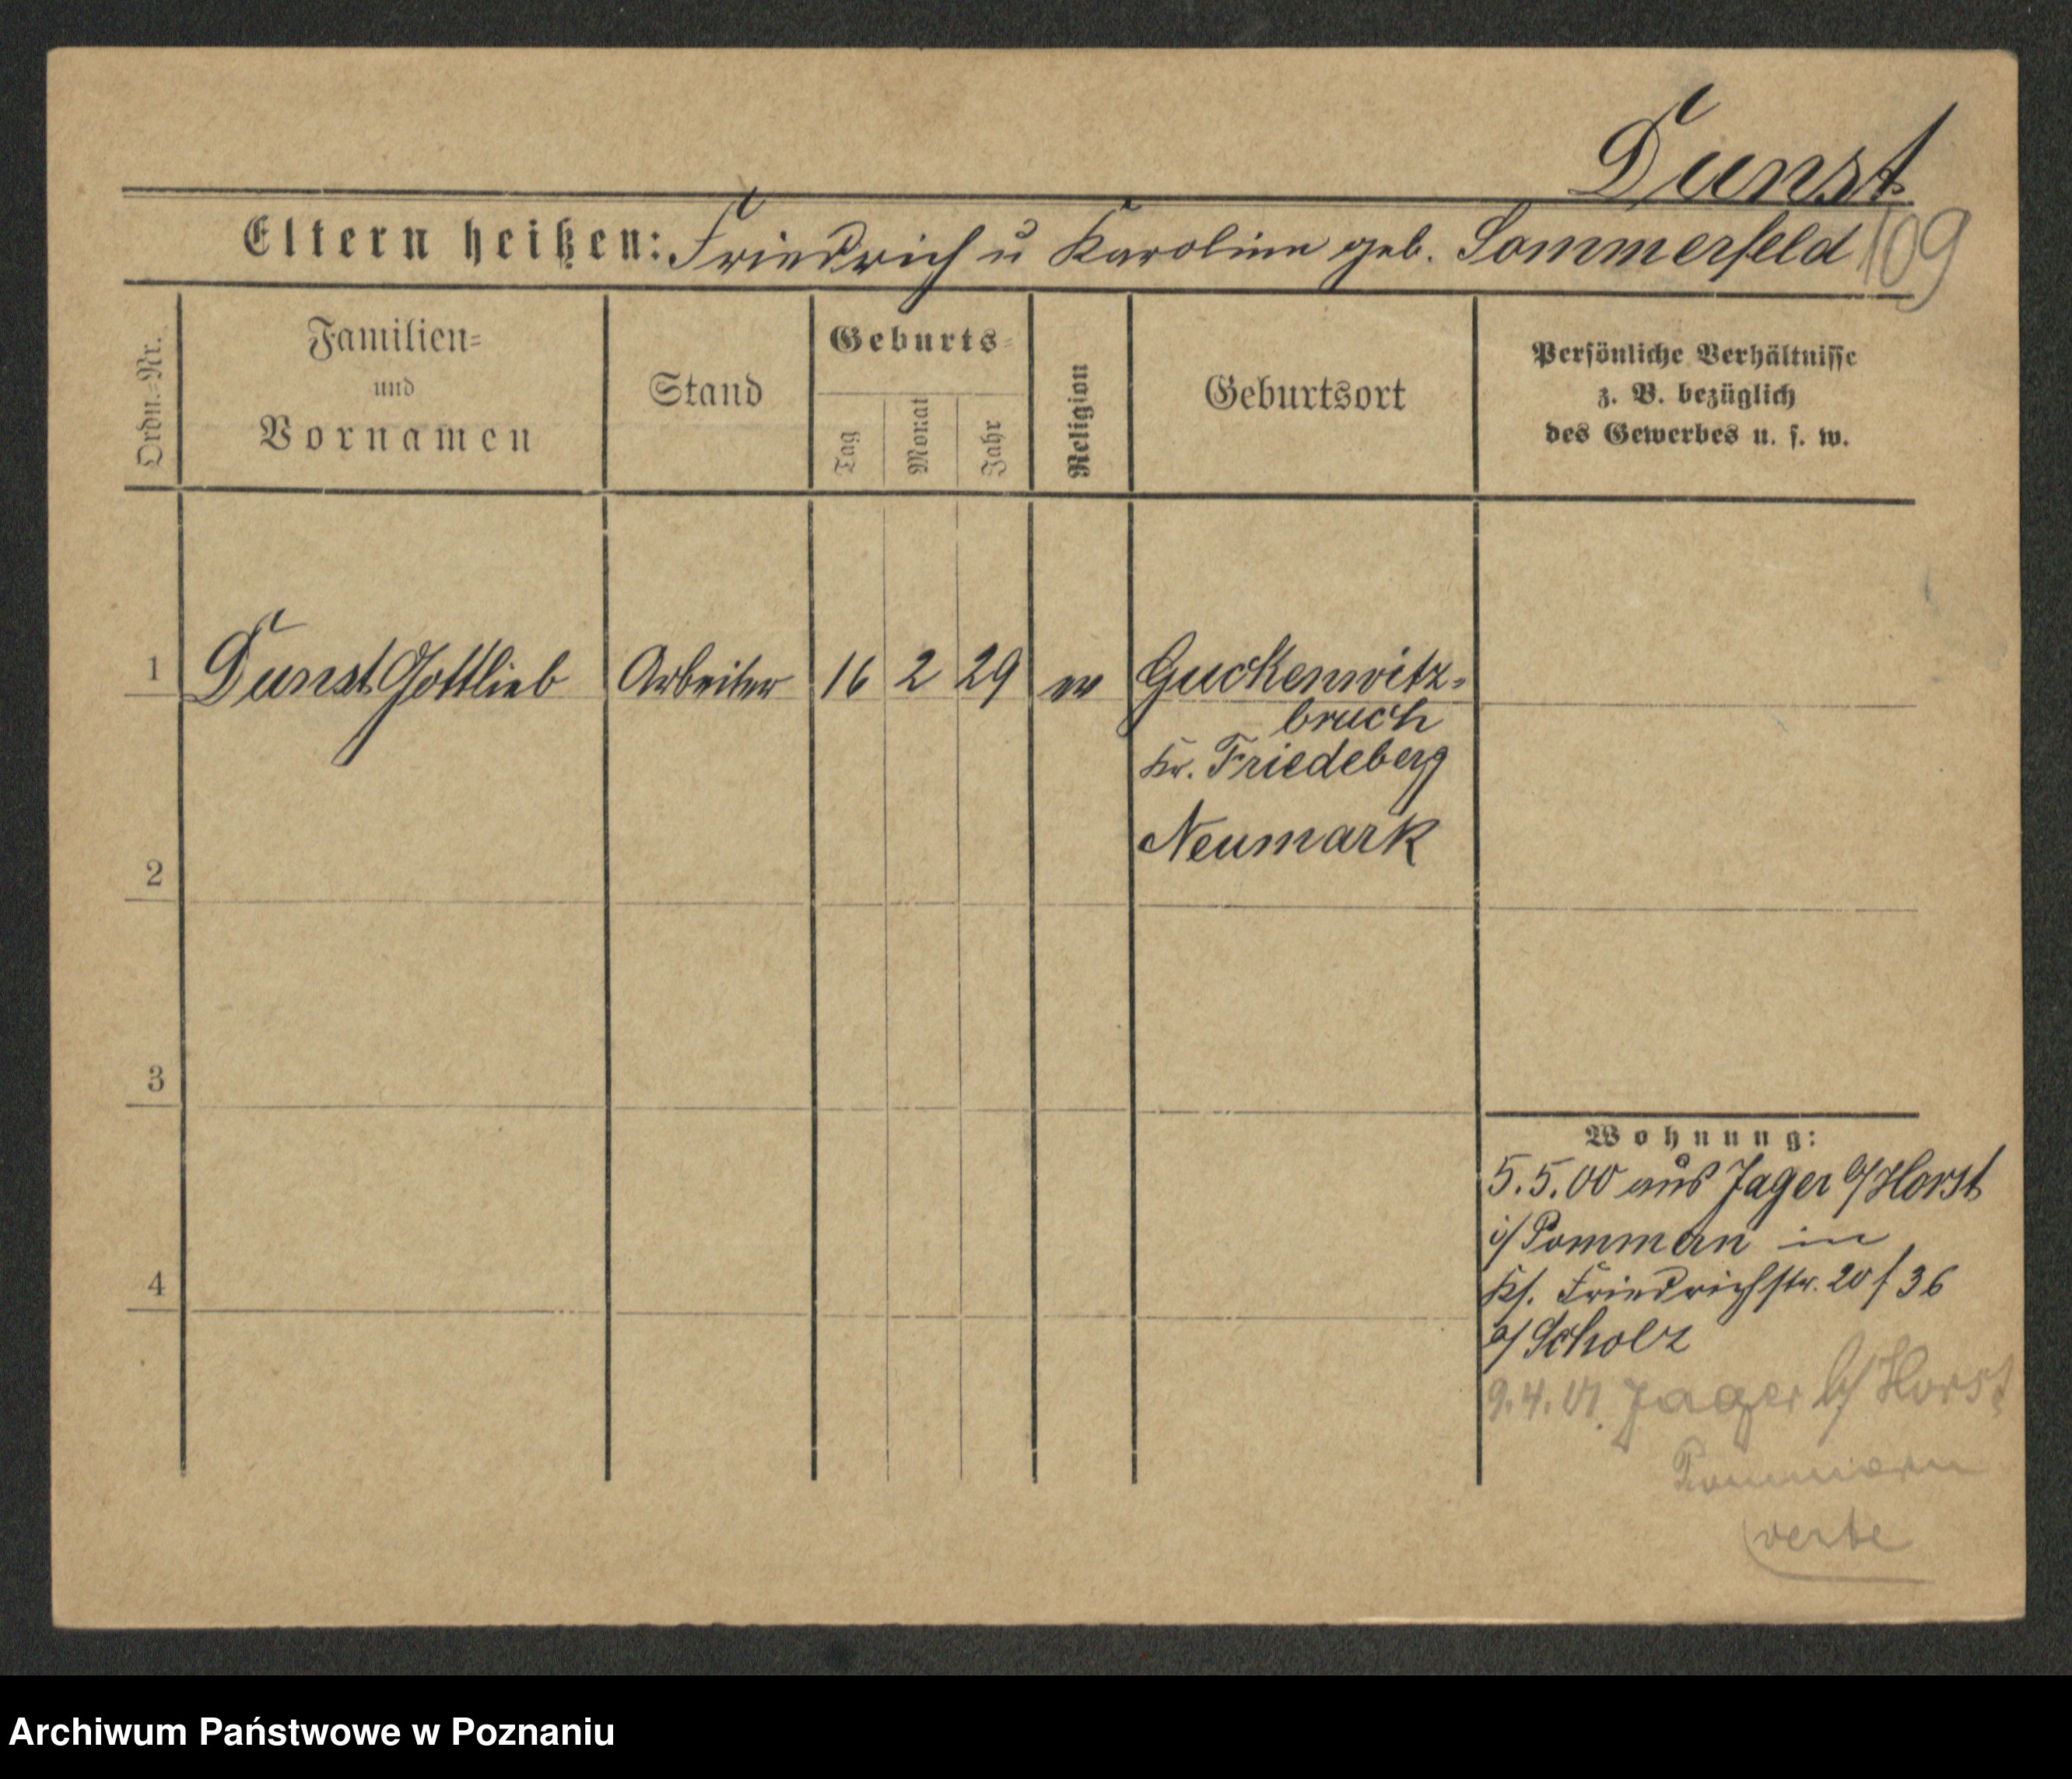 Dunst
Eltern heißen: Friedrich u Karoline geb. Sommerfeld
109
Ordn.-Nr.
Familien-
und
Vornamen
Stand
Geburts-
Tag
Monat
Jahr
Religion
Geburtsort
Persönliche Verhältnisse
z. B. bezüglich
des Gewerbes u. s. w.
1 Dunst Gottlieb Arbeiter 16 2 29 ev Guckenwitz-
bruch
Kr. Friedeberg
Neumark
2
3
Wohnung:
5.5.00 aus Jager b/Horst
i/Pommern in
Friedrichstr. 20 f 36
4
b/Scholz
9.4.01. Jager b/Horst
Pommern